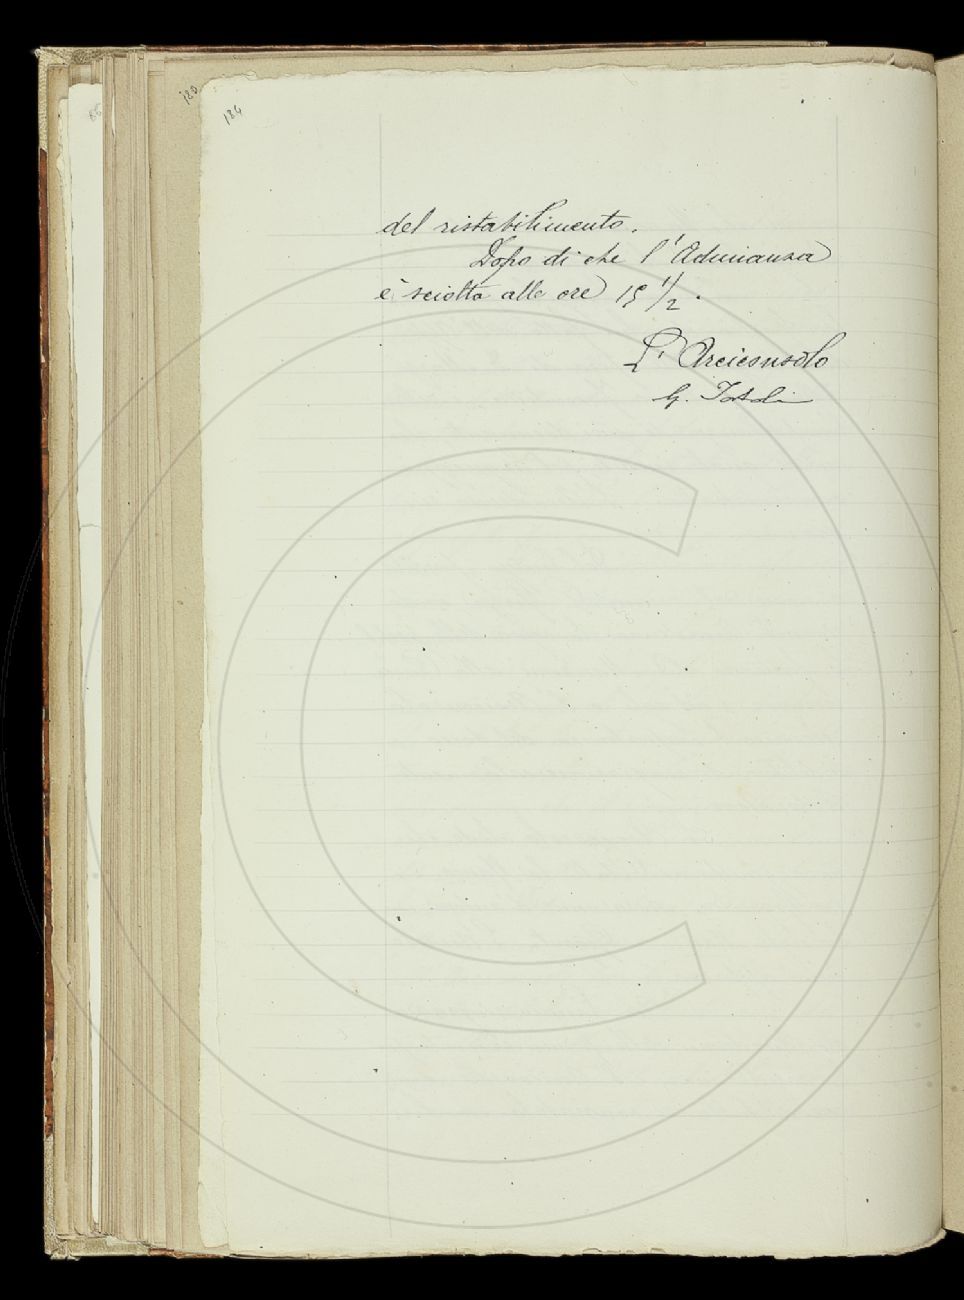 184
180
del ristabilimento.
Dopo di che l'Adunanza
è sciolta alle ore 19 1/2.
L'Arciconsolo
G.